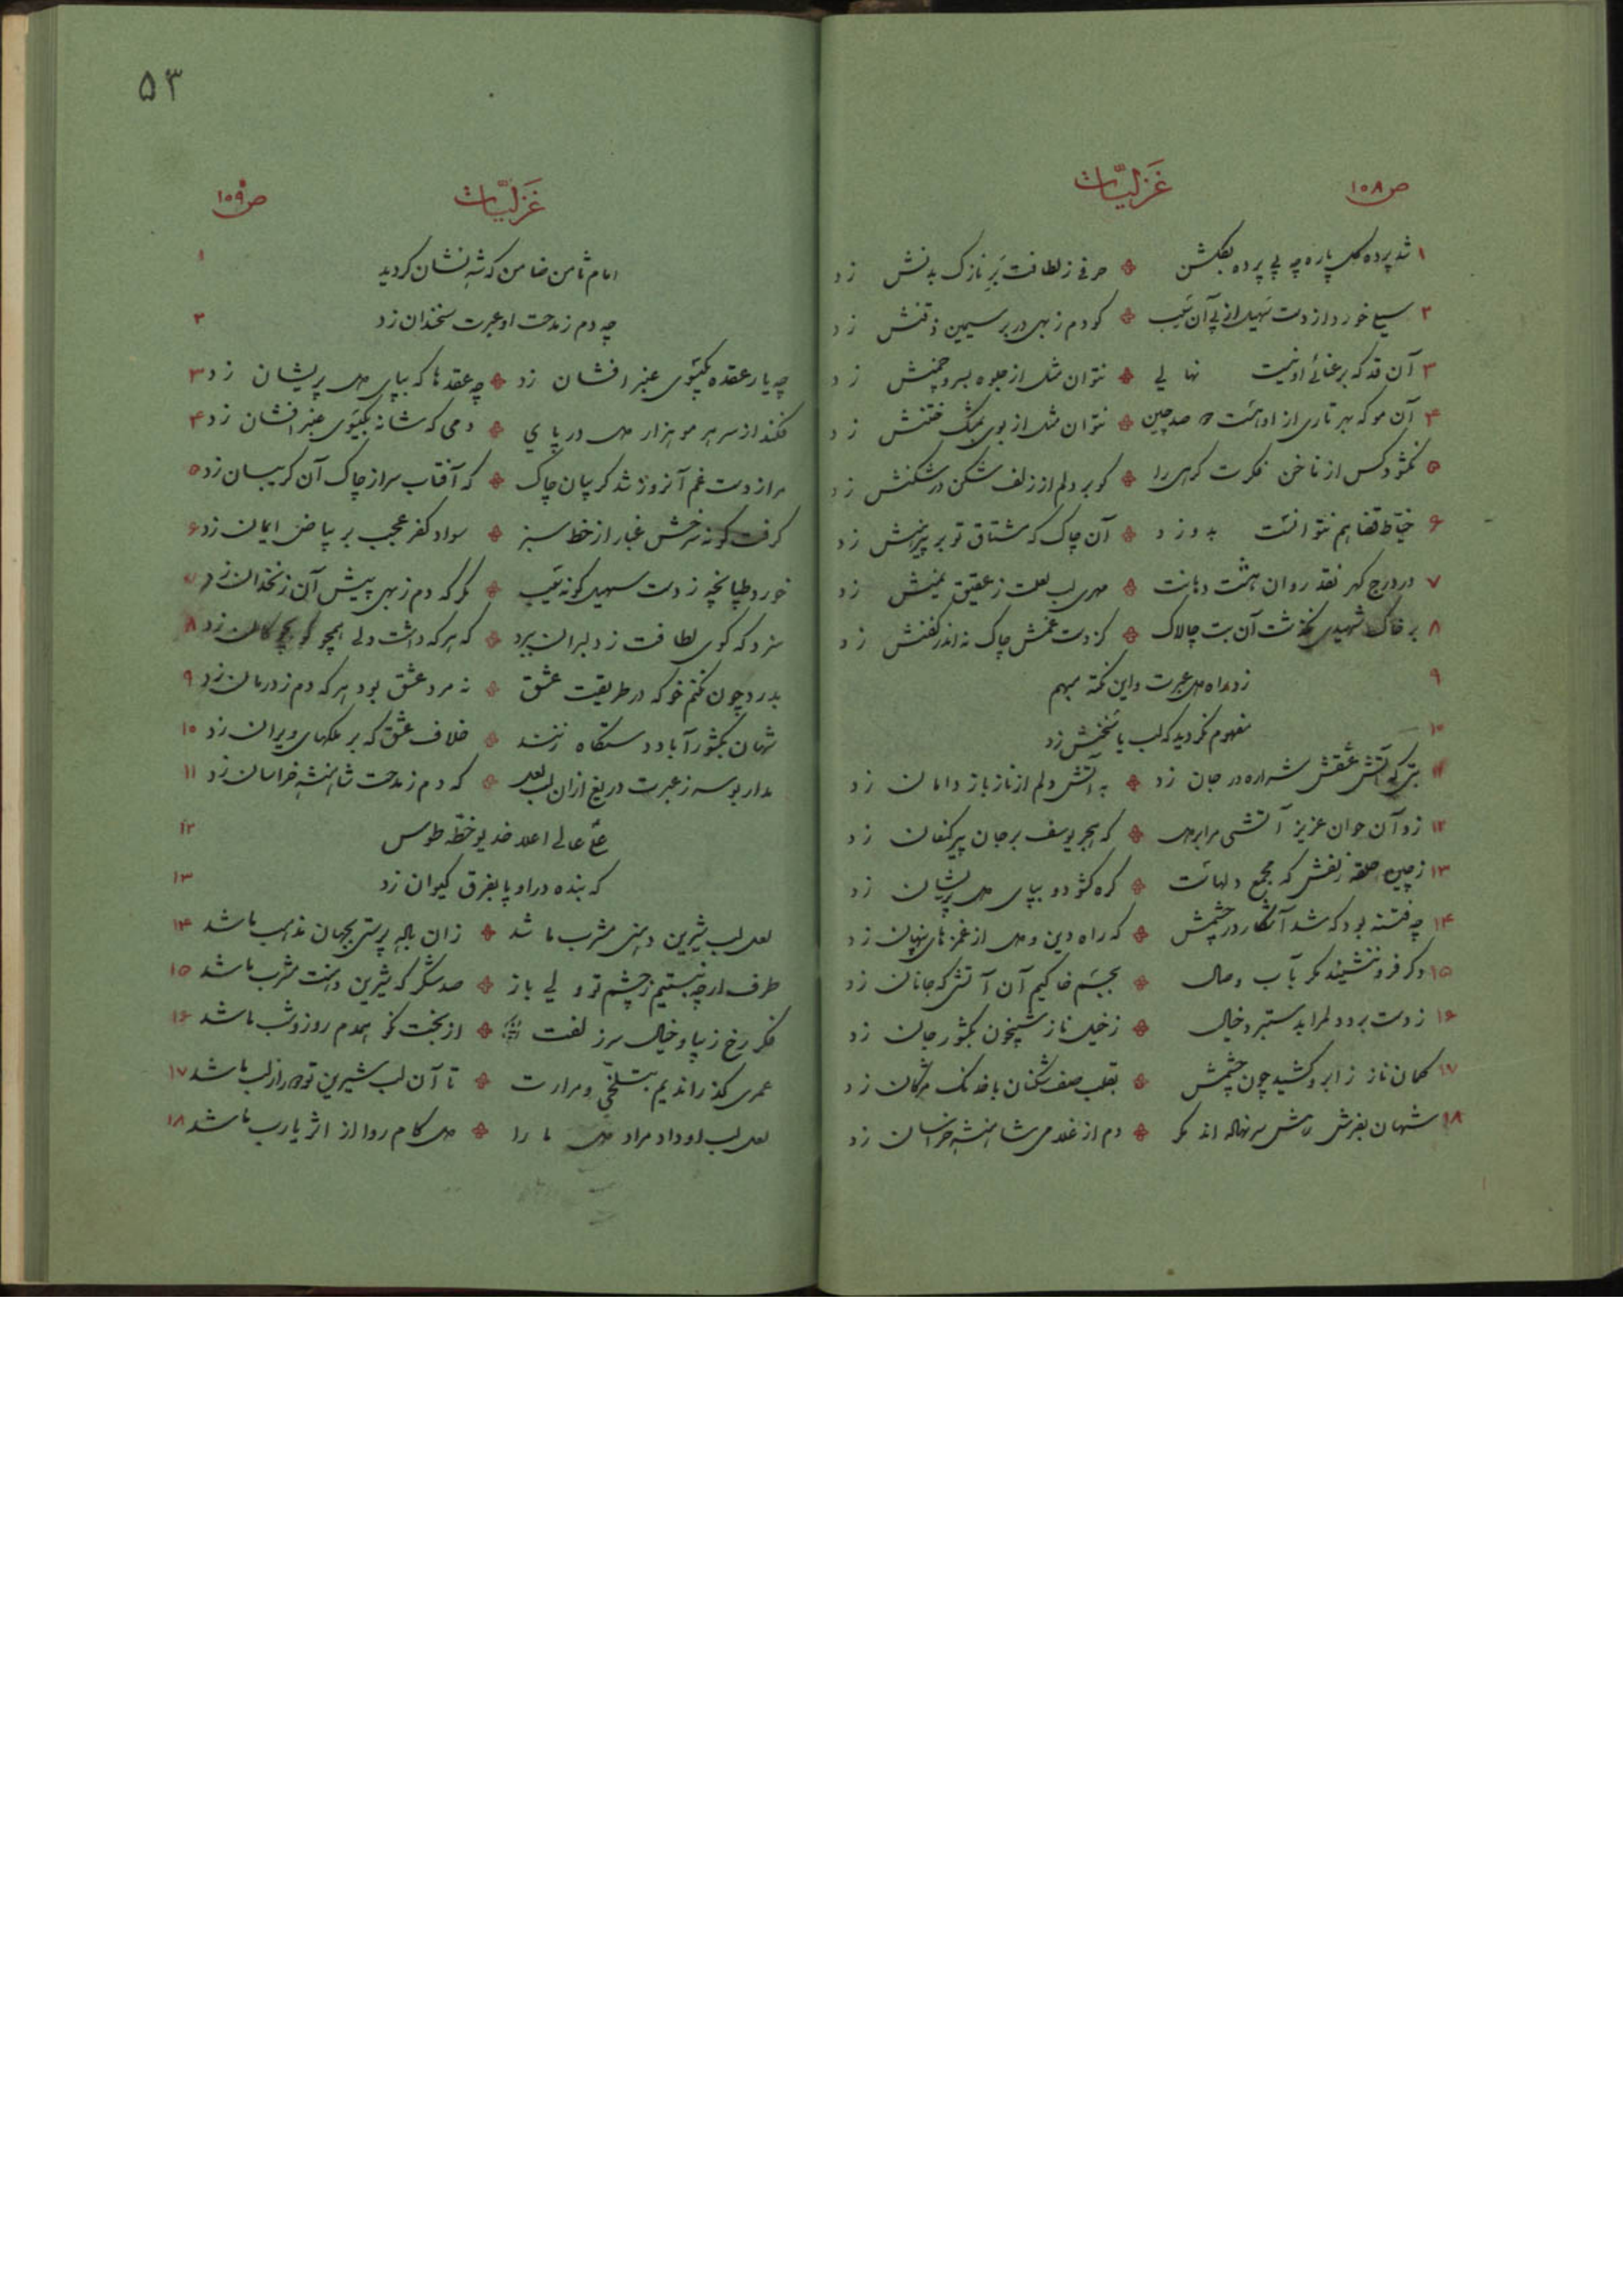 ص ۱۰۸ غزلیّات
۱ شد پرده گل پاره چه بی پرده بگلشن حرفی ز لطافت بَرِ نازک بدنش زد
۲ سیلی خورد از دست سُهیل از پی آن سَیب کو دم ز بهی در بر سیمین ذقنش زد
۳ آن قد که برعنائی او نیست نهالی نتوان مثل از جلوه بسرو چمنش زد
۴ آن مو که بهر تاری از او هست صد چین نتوان مثل از بوی بمشک ختنش زد
۵ نگشود کس از ناخن فکرت گرهی را کو بر دلم از زلف شکن در شکنش زد
۶ خیّاط قضا هم نتوانست بدوزد آن چاک که مشتاق تو بر پیرهنش زد
۷ در درج گهر نقد روان هشت دهانت مهری لب لعلت ز عقیق یمنش زد
۸ بر خاک شهیدی نگذشت آن بت چالاک کز دست غمش چاک نه اندر کفنش زد
۹ زد راه دل عبرت و این نکته مبهم
۱۰ مفهوم نگردید که لب یا سخنش زد
۱۱ بتی که آتش عشقش شراره در جان زد به آتش دلم از ناز باز دامان زد
۱۲ زد آن جوان عزیز آتشی مرا بر دل که هجر یوسف بر جان پیر کنعان زد
۱۳ ز چین حلقه زلفش که مجمع دلهاست گره گشود و بپای دل پریشان زد
۱۴ چه فتنه بود که شد آشکار در چشمش که راه دین و دل از غمزهای پنهان زد
۱۵ دگر فرو ننشیند مگر بآب وصال بجسم خاکیم آن آتش که جانان زد
۱۶ ز دست برد دلم را بدستبرد خیال ز خیل ناز شبیخون بکشور جان زد
۱۷ کمان ناز ز ابرو کشید چون چشمش بقلب صف شکنان با خدنگ مژگان زد
۱۸ شهان بفرش رهش سر نهاده اند مگر دم از غلامی شاهنشه خراسان زد
۵۳
ص ۱۰۹ غزلیّات
۱ امام ثامن ضامن که شه نشان گردید
۲ چه دم ز مدحت او عبرت سخندان زد
۳ چه یار عقده بگیسوی عنبر افشان زد چه عقدها که بپای دل پریشان زد
۴ فکند از سر هر مو هزار دل در پای دمی که شانه بگیسوی عنبر افشان زد
۵ مرا ز دست غم آنروز شد گریبان چاک که آفتاب سر از چاک آن گریبان زد
۶ گرفت گونه سرخش غبار از خط سبز سواد کفر عجب بر بیاض ایمان زد
۷ خورد طپانچه ز دست سهیل گونه سَیب مگر که دم ز بهی پیش آن زنخدان زد
۸ سزد که گوی لطافت ز دلبران ببرد که هرکه داشت دلی همچو گو بچوگان زد
۹ بدرد چون نکنم خو که در طریقت عشق نه مرد عشق بود هر که دم ز درمان زد
۱۰ شهان بکشور آباد دستگاه زنند خلاف عشق که بر ملکهای ویران زد
۱۱ مدار بوسه ز عبرت دریغ از ان لب لعل که دم ز مدحت شاهنشه خراسان زد
۱۲ علّی عالی اعلا خدیو خطّه طوس
۱۳ که بنده در او پا بفرق کیوان زد
۱۴ لعل لب شیرین دهنی مشرب ما شد زان باده پرستی بجهان مذهب ما شد
۱۵ طرف ار چه نبستیم ز چشم تو ولی باز صد شکر که شیرین دهنت مشرب ما شد
۱۶ فکر رخ زیبا و خیال سر زلفت از بخت نکو همدم روز و شب ما شد
۱۷ عمری گذراندیم بتلخیّ و مرارت تا آن لب شیرین تو از لب ما شد
۱۸ لعل لب او داد مراد دل ما را دل کام روا از اثر یارب ما شد